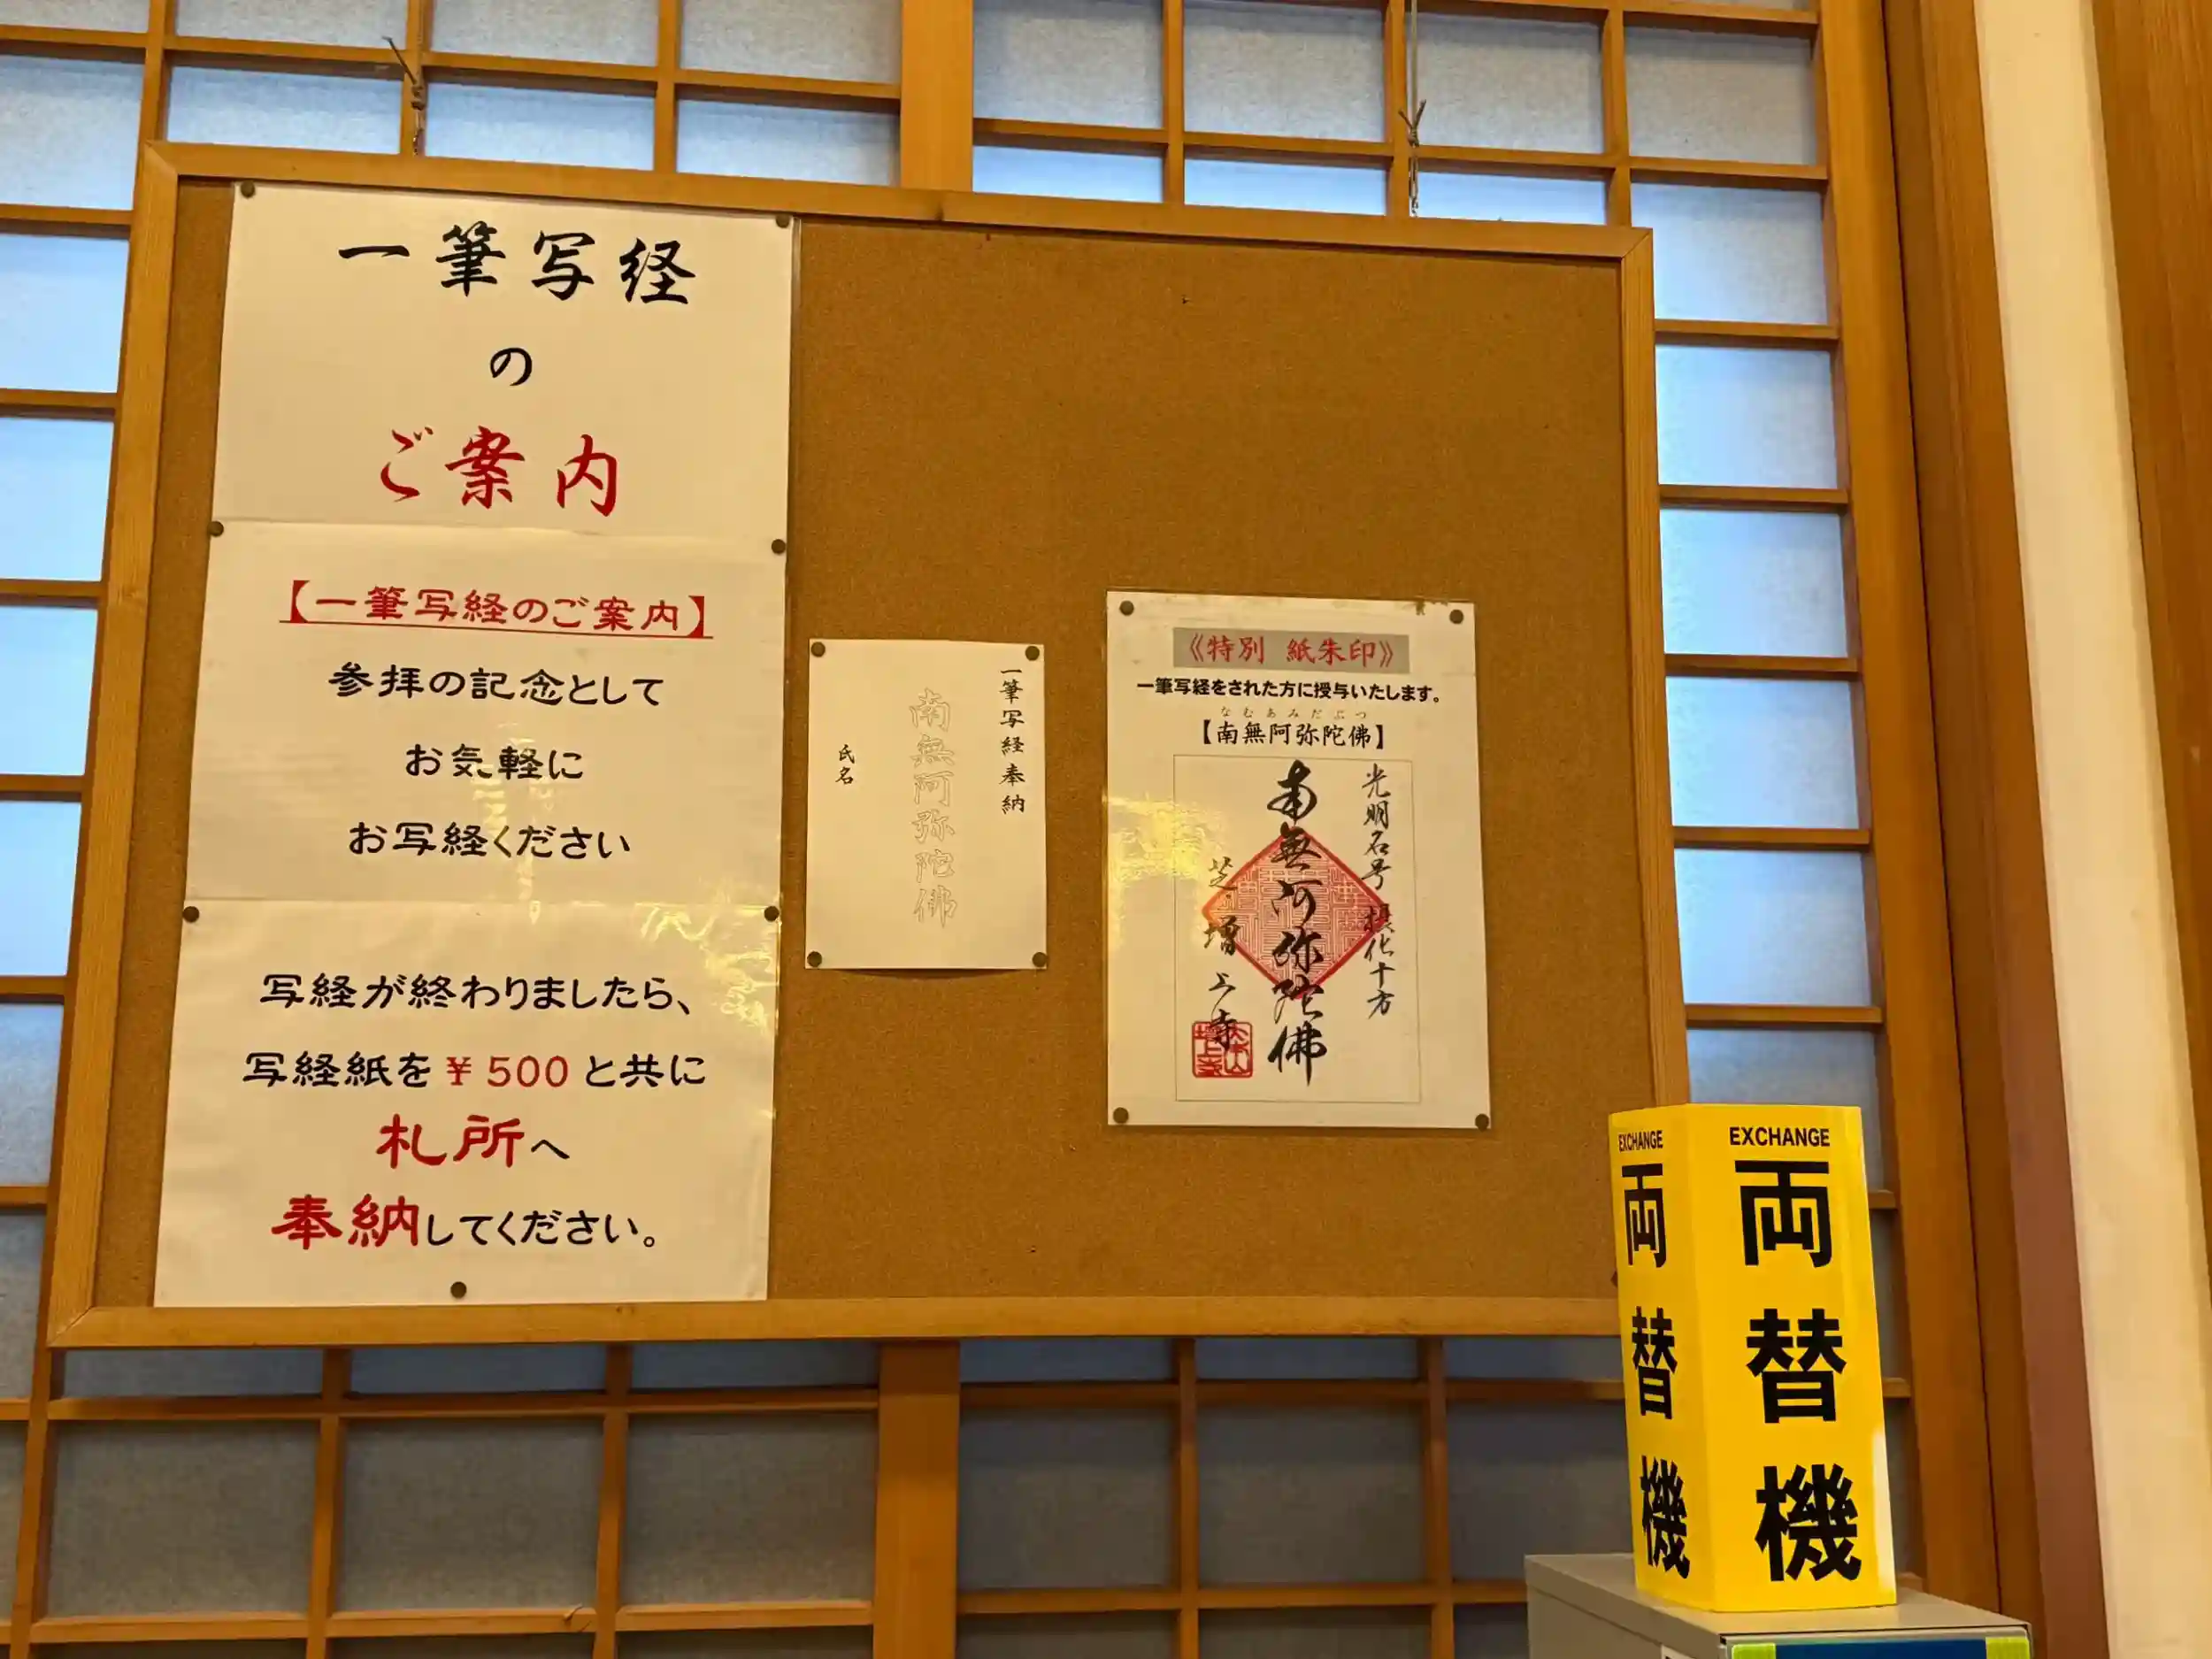 一筆写経
の
ご案内
【一筆写経のご案内】
参拝の記念として
お気軽に
お写経ください
写経が終わりましたら、
写経紙を￥500と共に
札所へ
奉納してください。
一筆写経奉納
南無阿弥陀佛
氏名
《特別 紙朱印》
一筆写経をされた方に授与いたします。
なむあみだぶつ
【南無阿弥陀佛】
光明名号 摂化十方
南無阿弥陀佛
芝・増上寺
EXCHANGE
両替機
EXCHANGE
両替機